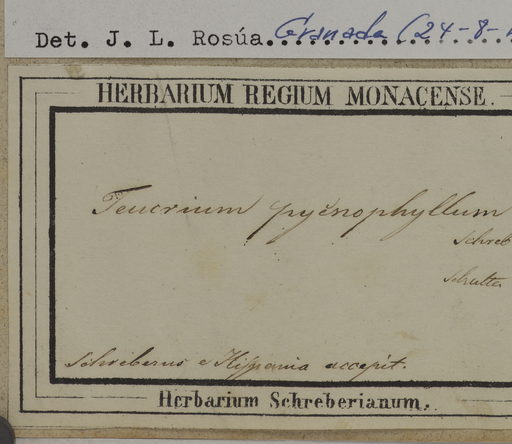 Det. J. L. Rosúa. Granada (24-8-
HERBARIUM REGIUM MONACENSE.
Teucrium pycnophyllum
Schreb
Schreberus e Hispania accepit.
Herbarium Schreberianum.